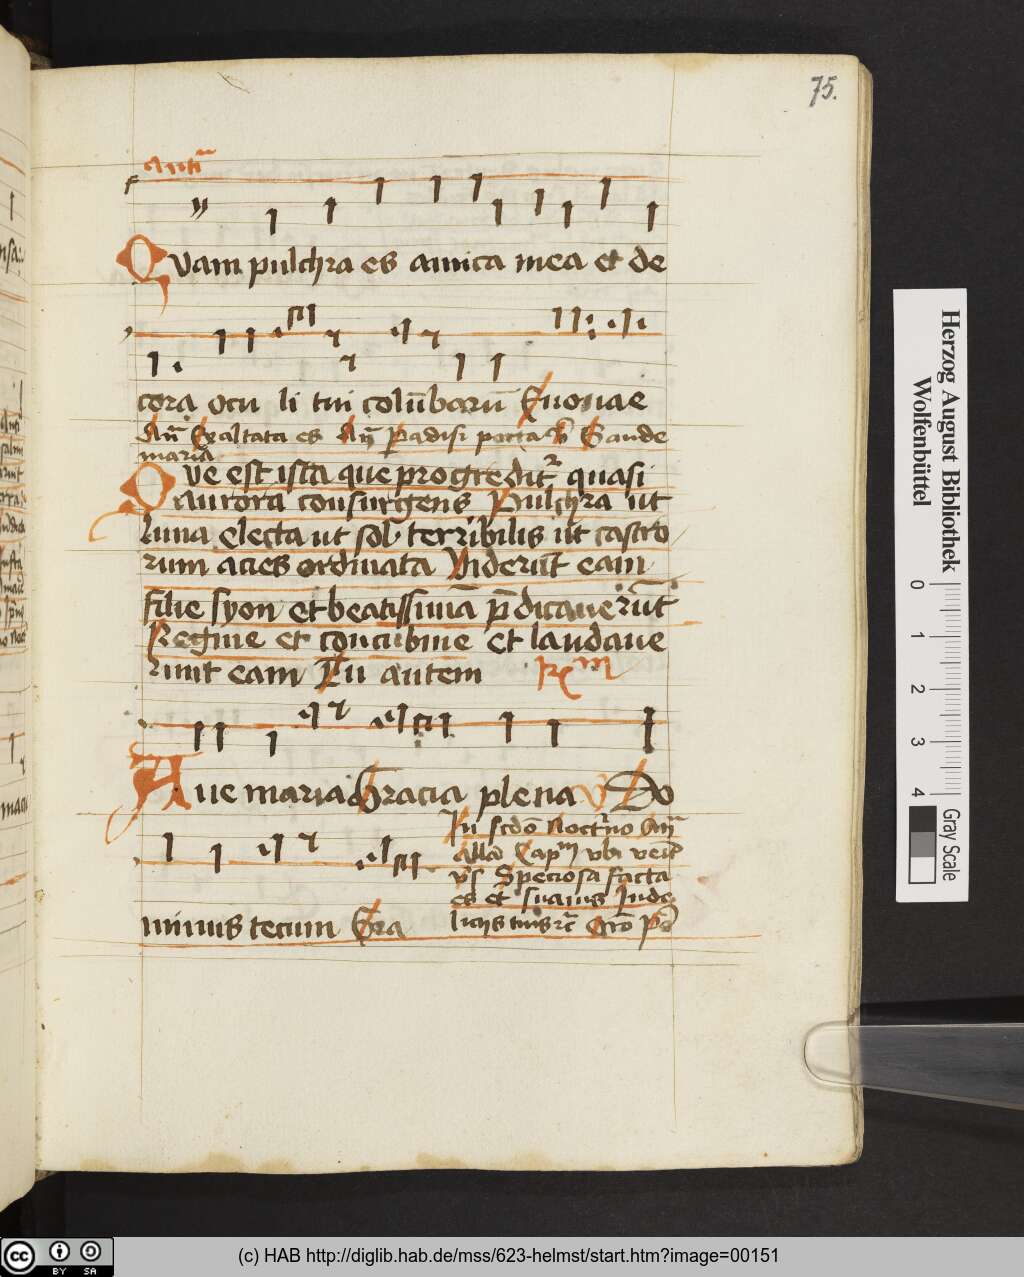 75.
Antı̄
Quam pulchra es amica mea et de
cora ocu li tui colūbarū Euouae
Añ Exaltata es Añ Paradisi porta Gaude
maria
Que est ista que progredit᷑ quasi
aurora consurgens Pulchra ut
luna electa ut sol terribilis ut castro
rum acies ordinata Viderūt eam
filie syon et beatissimā p̄dicauerūt
Regine et concubine et laudaue
runt eam Tu autem
Aue maria Gracia plena V Do
In scdo Nocturno Añ
Alla Cap
vs Speciosa facta
es et suauis In de
minus tecum Era
licijs tuis
Herzog August Bibliothek
Wolfenbüttel
0 1 2 3 4
Gray Scale
cc BY SA
(c) HAB http://diglib.hab.de/mss/623-helmst/start.htm?image=00151